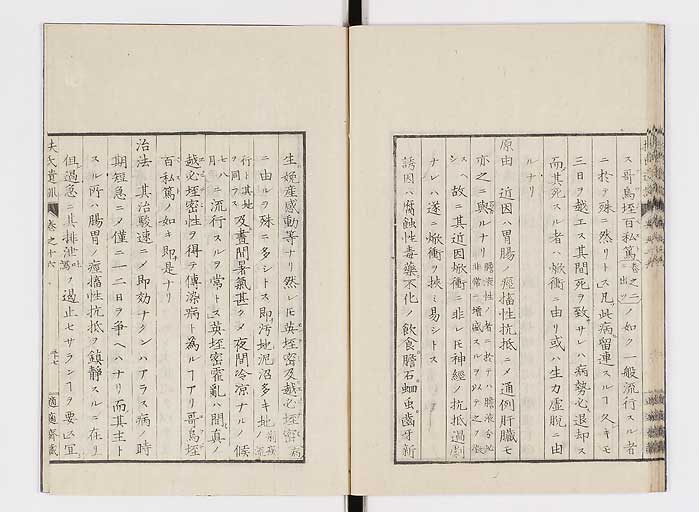 ス哥烏垤百私篤巻之二ニ出ツノ如ク一般流行スル者
ニ於テ殊ニ然リトス凡此病留連スルヿ久キモ
三日ヲ越エス其間死ヲ致サレハ病勢必退却ス
而其死スル者ハ焮衝ニ由リ或ハ生力虚脱ニ由
ルナリ
原由 近因ハ胃腸ノ痙攣性抗抵ニメ通例肝臓モ
亦之ニ與ルナリ
シ故ニ其近因焮衝ニ非レ𪜈神経ノ抗抵過劇
ナレハ遂ニ焮衝ヲ挾ミ易シトス
誘因ハ腐蝕性毒藥不化ノ飲食膽石蛔虫齒牙新
生娩産感動等ナリ然レ𪜈英垤密及越必垤密病
ニ由ルヲ殊ニ多シトス即汚地泥沼多キ地
行ト其地ヲ同フス及晝間暑氣甚クメ夜間冷凉ナルノ候
七八月ニ流行スルヲ常トス英垤密霍亂ハ間真ノ
越必垤密性ヲ得テ傳染病ト為ルヿアリ哥烏垤
百私篤ノ如キ即是ナリ
治法 其治駿速ニメ即効ナクンハアラス病ノ時
期短急ニメ僅ニ一二日ヲ争ヘハナリ而其主ト
スル所ハ腸胃ノ痙攣性抗抵ヲ鎮静スルニ在リ
但過急ニ其排泄吐瀉ノヲ遏止セサランヿヲ要ス宜
扶氏遺訓 巻之十六 適適齋藏